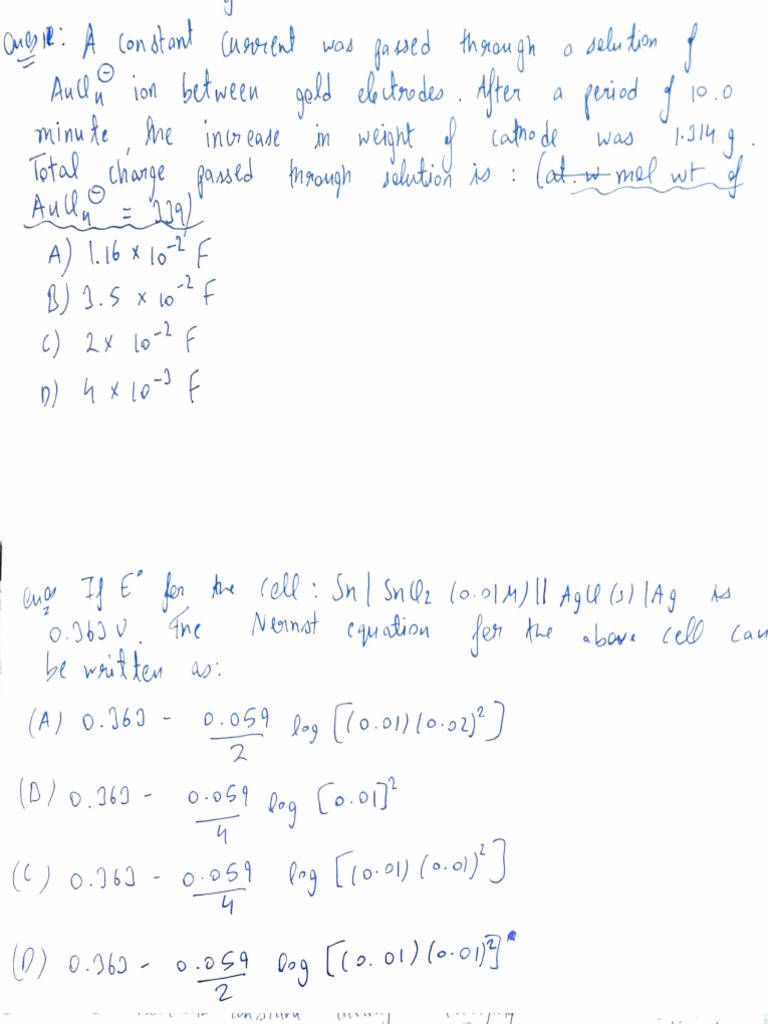 Ques 1: A constant current was passed through a solution of
AuCl₄⊖ ion between gold electrodes. After a period of 10.0
minute, the increase in weight of cathode was 1.314 g.
Total charge passed through solution is : (at. w mol wt of
AuCl₄⊖ = 339)
A) 1.16 × 10⁻² F
B) 3.5 × 10⁻² F
C) 2 × 10⁻² F
D) 4 × 10⁻³ F
Ques 2 If E° for the cell : Sn | SnCl2 (0.01M) || AgCl (s) | Ag is
0.363 V. The Nernst equation for the above cell can
be written as:
(A) 0.363 - 0.059/2 log [(0.01)(0.02)²]
(B) 0.363 - 0.059/4 log [0.01]²
(C) 0.363 - 0.059/4 log [(0.01)(0.01)²]
(D) 0.363 - 0.059/2 log [(0.01)(0.01)²]